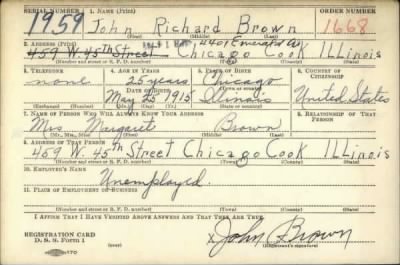 SERIAL NUMBER 1. NAME (Print) ORDER NUMBER
1959 John Richard Brown 1668
2. ADDRESS (Print) 4401 Emerald Av
459 W. 45th Street Chicago Cook ILLinois
(Number and street or R. F. D. number) (Town) (County) (State)
3. TELEPHONE 4. AGE IN YEARS 5. PLACE OF BIRTH 6. COUNTRY OF CITIZENSHIP
none 25 years Chicago
DATE OF BIRTH (Town or county)
May 25 1915 Illinois United States
(Exchange) (Number) (Mo.) (Day) (Yr.) (State or country)
7. NAME OF PERSON WHO WILL ALWAYS KNOW YOUR ADDRESS 8. RELATIONSHIP OF THAT PERSON
Mrs. Margaret Brown
(Mr., Mrs., Miss) (First) (Middle) (Last)
9. ADDRESS OF THAT PERSON
459 W. 45th Street Chicago Cook ILLinois
(Number and street or R. F. D. number) (Town) (County) (State)
10. EMPLOYER'S NAME
Unemployed
11. PLACE OF EMPLOYMENT OR BUSINESS
(Number and street or R. F. D. number) (Town) (County) (State)
I AFFIRM THAT I HAVE VERIFIED ABOVE ANSWERS AND THAT THEY ARE TRUE.
REGISTRATION CARD
D. S. S. Form 1
X John Brown
(Registrant's signature)